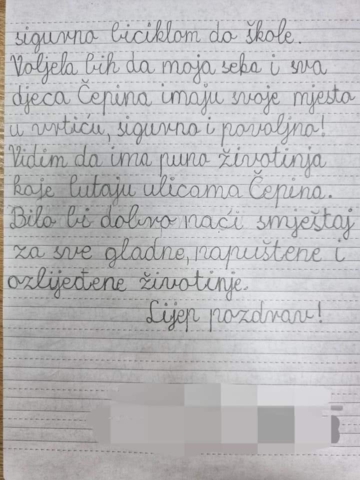 sigurno biciklom do škole.
Voljela bih da moja seka i sva
djeca Čepina imaju svoje mjesto
u vrtiću, sigurno i povoljno!
Vidim da ima puno životinja
koje lutaju ulicama Čepina.
Bilo bi dobro naći smještaj
za sve gladne, napuštene i
ozlijeđene životinje.
Lijep pozdrav!